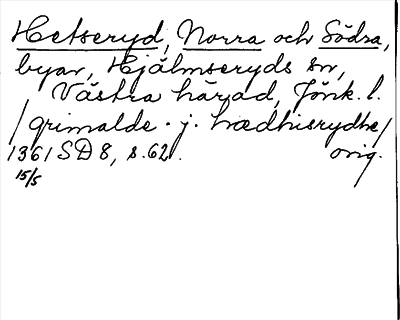 Hetseryd, Norra och Södra,
byar, Hjälmseryds sn,
Västra härad, Jönk. l.
/grimalde . j . hædhisrydhe/
1361 SD 8, s. 62. orig.
15/5